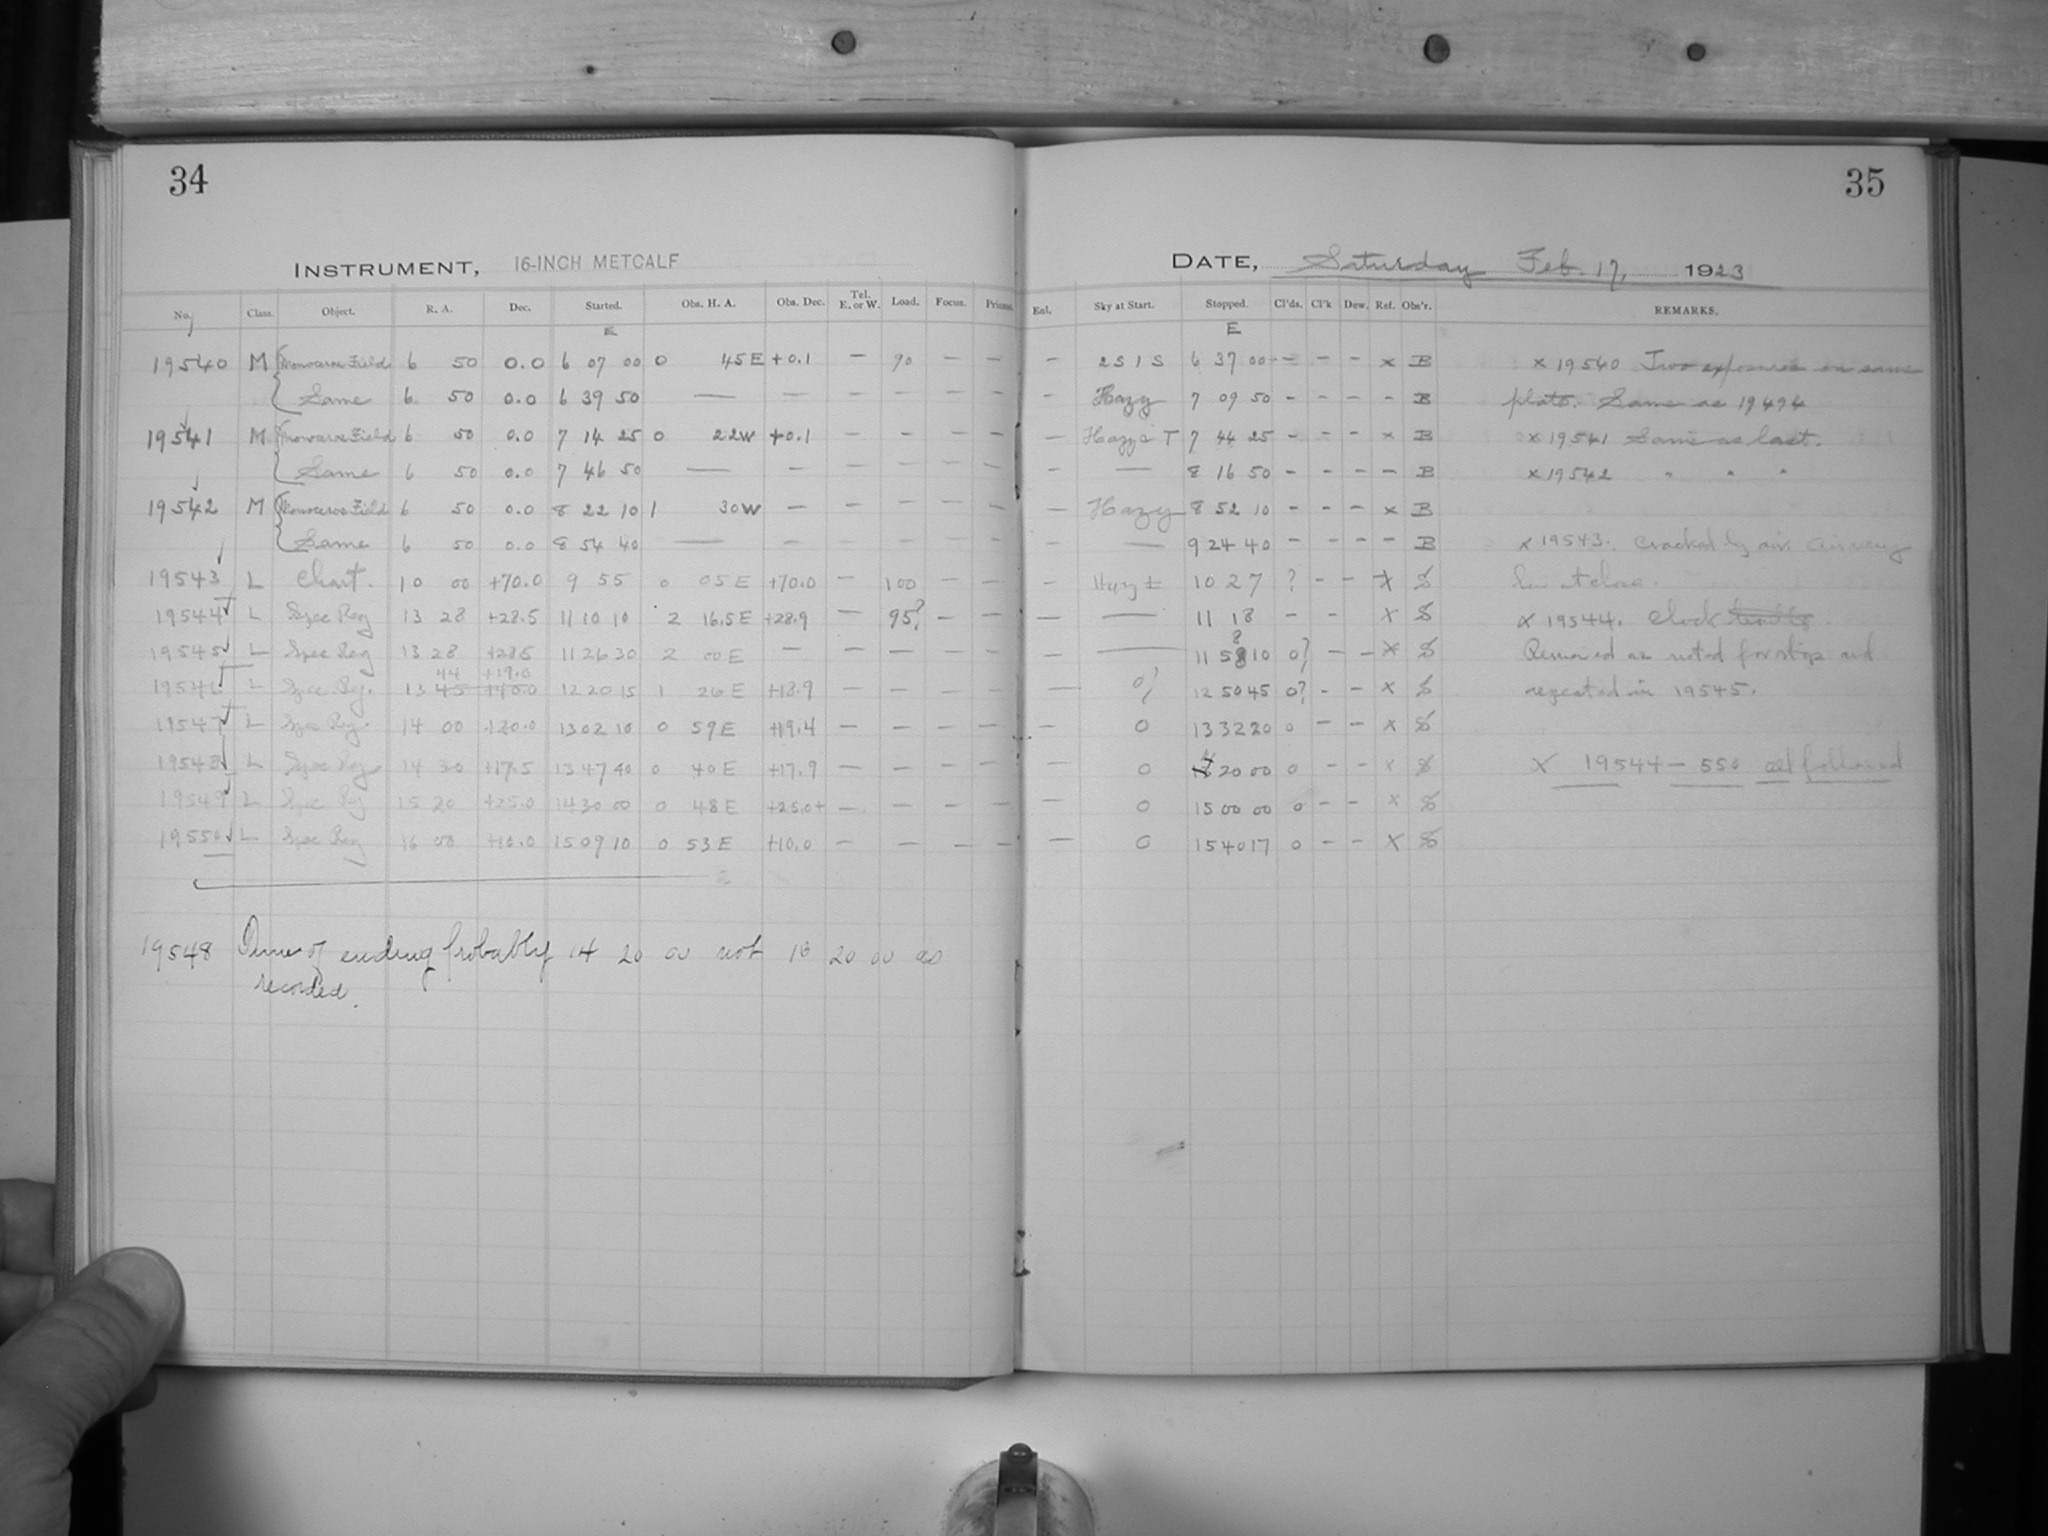 34
INSTRUMENT, 16-INCH METCALF
No. Class. Object. R. A. Dec. Started. Obs. H. A. Obs. Dec. Tel. E. or W. Load. Focus. Prisms.
E
19540 M Monoceros Field 6 50 0.0 6 07 00 0 45 E +0.1 — 90 — —
Same 6 50 0.0 6 39 50 — — — — — —
19541 M Monoceros Field 6 50 0.0 7 14 25 0 22 W +0.1 — — — —
Same 6 50 0.0 7 46 50 — — — — — —
19542 M Monoceros Field 6 50 0.0 8 22 10 1 30 W — — — — —
Same 6 50 0.0 8 54 40 — — — — — —
19543 L Chart. 10 00 +70.0 9 55 0 05 E +70.0 — 100 — —
19544 L Spec Reg 13 28 +28.5 11 10 10 2 16.5 E +28.9 — 95? — —
19545 L Spec Reg 13 28 +28.5 11 26 30 2 00 E — — — — —
44 +19.0
19546 L Spec Reg. 13 45 +40.0 12 20 15 1 26 E +18.9 — — — —
19547 L Spec Reg. 14 00 +20.0 13 02 10 0 59 E +19.4 — — — —
19548 L Spec Reg 14 30 +17.5 13 47 40 0 40 E +17.9 — — — —
19549 L Spec Reg 15 20 +25.0 14 30 00 0 48 E +25.0+ — — — —
19550 L Spec Reg 16 00 +10.0 15 09 10 0 53 E +10.0 — — — —
19548 Time of ending probably 14 20 00 not 16 20 00 as
recorded.
35
DATE, Saturday Feb. 17, 1923
Eol. Sky at Start. Stopped. Cl'ds. Cl'k Dew. Ref. Obs'r. REMARKS.
E
— 2 S 1 S 6 37 00 — — — x B x 19540 Two exposures on same
— Hazy 7 09 50 — — — — B plate. Same as 19494
— Hazy T 7 44 25 — — — x B x 19541 Same as last.
— — 8 16 50 — — — — B x 19542 " " "
— Hazy 8 52 10 — — — x B
— — 9 24 40 — — — — B x 19543. Cracked by
— Hazy 10 27 ? — — x S close.
— — 11 18 — — x S x 19544. Clock
8
— — 11 58 10 0? — — x S as noted for stops and
— 0? 12 50 45 0? — — x S repeated in 19545.
— 0 13 32 20 0 — — x S
4
0 20 00 0 — — x S X 19544 — 550 all followed
0 15 00 00 0 — — x S
— 0 15 40 17 0 — — x S